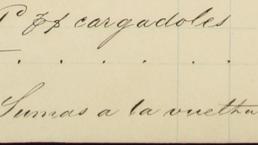 cargadoles
. . . . . .
Sumas a la vuelta